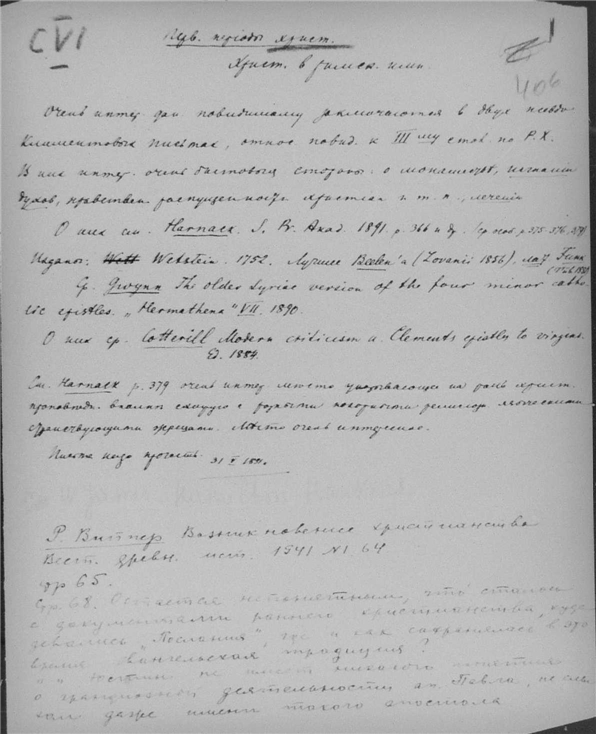 CVI
1
Перв. периоды христ.
406
Христ. в римск. имп.
Очень интер. дан. повидимому заключаются в двух псевдо
Климентовых письмах, относ. повид. к III му стол. по Р. Х.
В них интер. очень бытовыя о монашестве, изгнании
духов, нравствен. распущенности христиан и т. п., лечении
О них см. Harnack. S. Br. Akad. 1891. p. 366 и др. (ср. особ. p. 375, 376,
Изданы: Wetstein. 1752. Лучшее Beelen'а (Lovanii 1856), Funk
Ср. Gwynn The older Syriac version of the four minor catho-
lic epistles. „Hermathena“ VII. 1890.
О них ср. Cotterill Modern criticism a. Clements epistles to virgins.
Ed. 1884.
См. Harnack p. 379 очень интер. место указывающее на роль христ.
с религ. языческими
странствующими жрецами. Место очень интересное.
Письма надо прочесть. 31 V 1891.
Р. Виппер. Возникновение христианства
Вест. древн. ист. 1941 №1 64
стр 65.
Стр. 68. Остается непонятным, что сталось
с документами раннего христианства, куда
девались „Послания“, где и как сохранялась в это
время „Евангельская традиция“,
Юстин не имеет никакого понятия
о грандиозной деятельности ап. Павла, не слы-
хал даже имени такого апостола